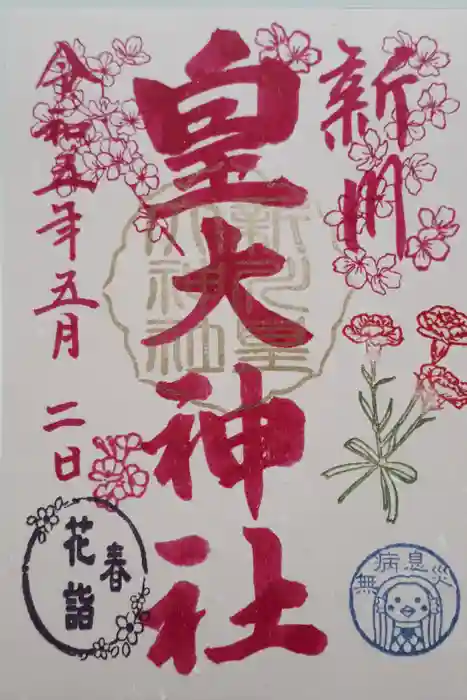 新川
皇大神社
令和五年五月二日
新川皇
大神社
春
花詣
無病息災